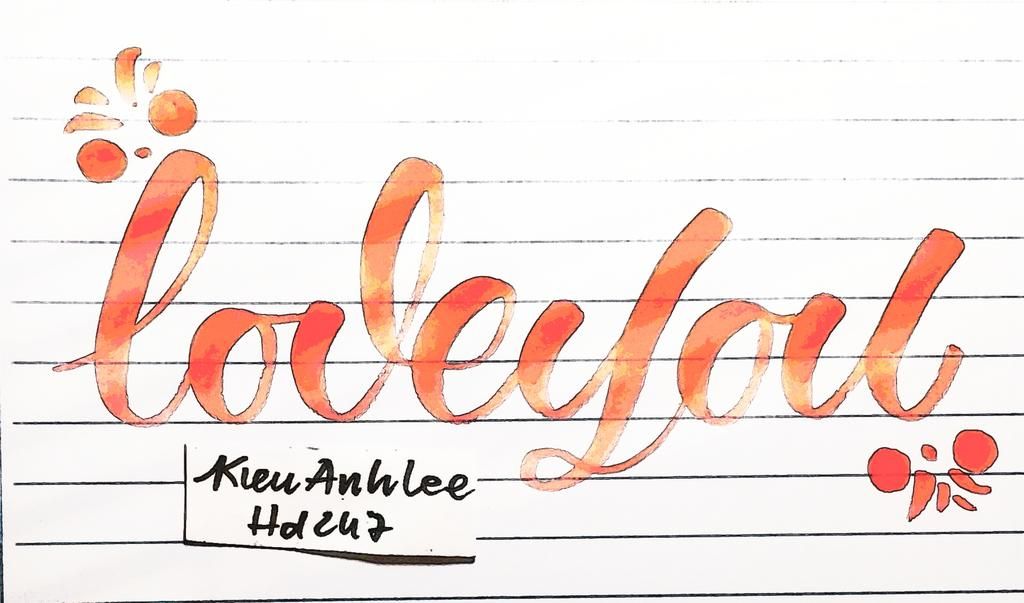 loveyou
KieuAnhlee
Hd247